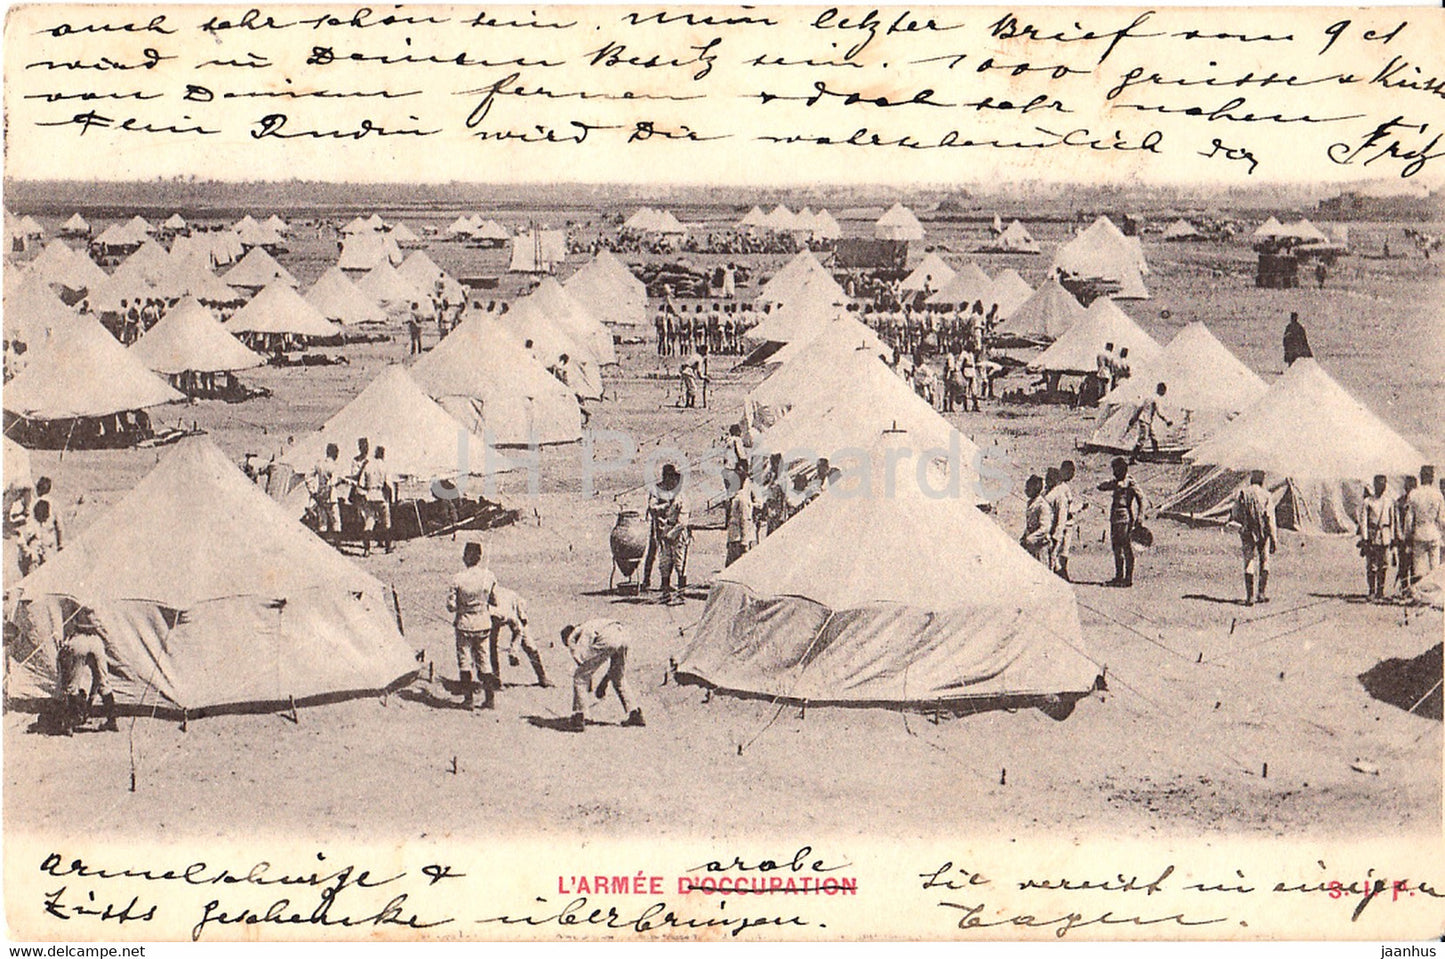 auch sehr schön sein. Mein letzter Brief vom 9 ct
wird in Deinem Besitz sein. 1000 grüsse & Küsse
von Deinem fernen & doch sehr nahen
Fritz
wird Dir wahrscheinlich die
JH Postcards
arabe
L'ARMÉE D'OCCUPATION
S. I. P.
&
geschenke überbringen.
Sie verreist in einigen
Tagen.
jh-webstore.com
jaanhus